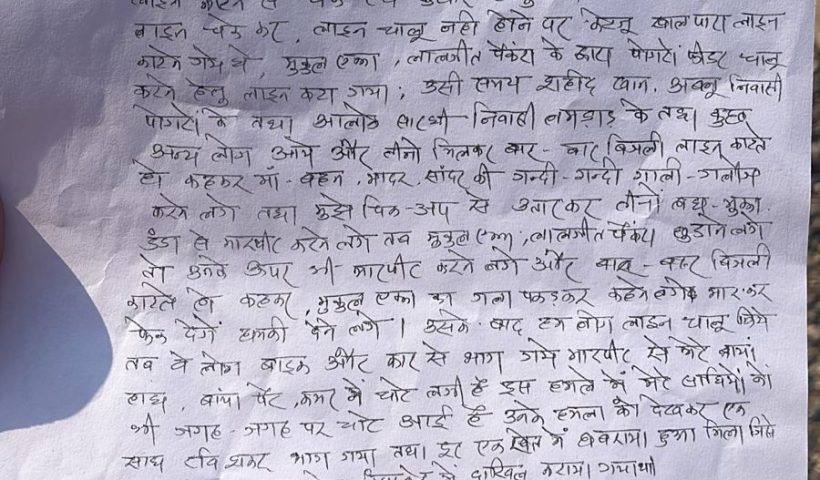 लाइन चेक कर, लाइन चालू नही होने पर केरजू खालपारा लाइन
काटने गये थे, मुकुल एक्का, लालजीत पैंकरा के द्वारा पोगरों फीडर चालू
करने हेतु लाइन कटा गया, उसी समय शहीद खान, अक्लू निवासी
पोगरों के तथा आलोक सारथी निवासी लमगाड़ के तथा कुछ
अन्य लोग आये और तीनो मिलकर बार - बार बिजली लाइन काटते
हो कहकर माँ - बहन, मादर, की गन्दी - गन्दी गाली - गलौज
करने लगे तथा मुझे पिक - अप से उतारकर तीनों लथु - मुक्का
डंडा से मारपीट करने लगे तब मुकुल एक्का, लालजीत पैंकरा छुडाने लगे
तो उनके ऊपर भी मारपीट करने लगे और बार - बार बिजली
काटते हो कहकर, मुकुल एक्का का गला पकड़कर कहने लगे मारकर
फेंक देगें धमकी देने लगे । उसके बाद हम लोग लाइन चालू किये
तब वे लोग बाइक और कार से भाग गये मारपीट से मेरे बायां
हाथ, बांया पैर, कमर में चोट लगी है इस हमले में मेरे साथियों को
भी जगह - जगह पर चोट आई है उनके हमला को देखकर एक
साथ रवि शंकर भाग गया तथा एक खेत में घबराया हुआ मिला जिसे
में दाखिल कराया गया था।